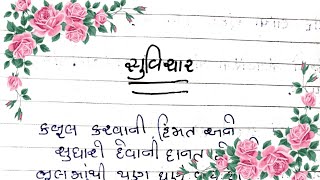 સુવિચાર
કબૂલ કરવાની હિંમત અને
સુધારી દેવાની દાનત
ભૂલમાંથી પણ